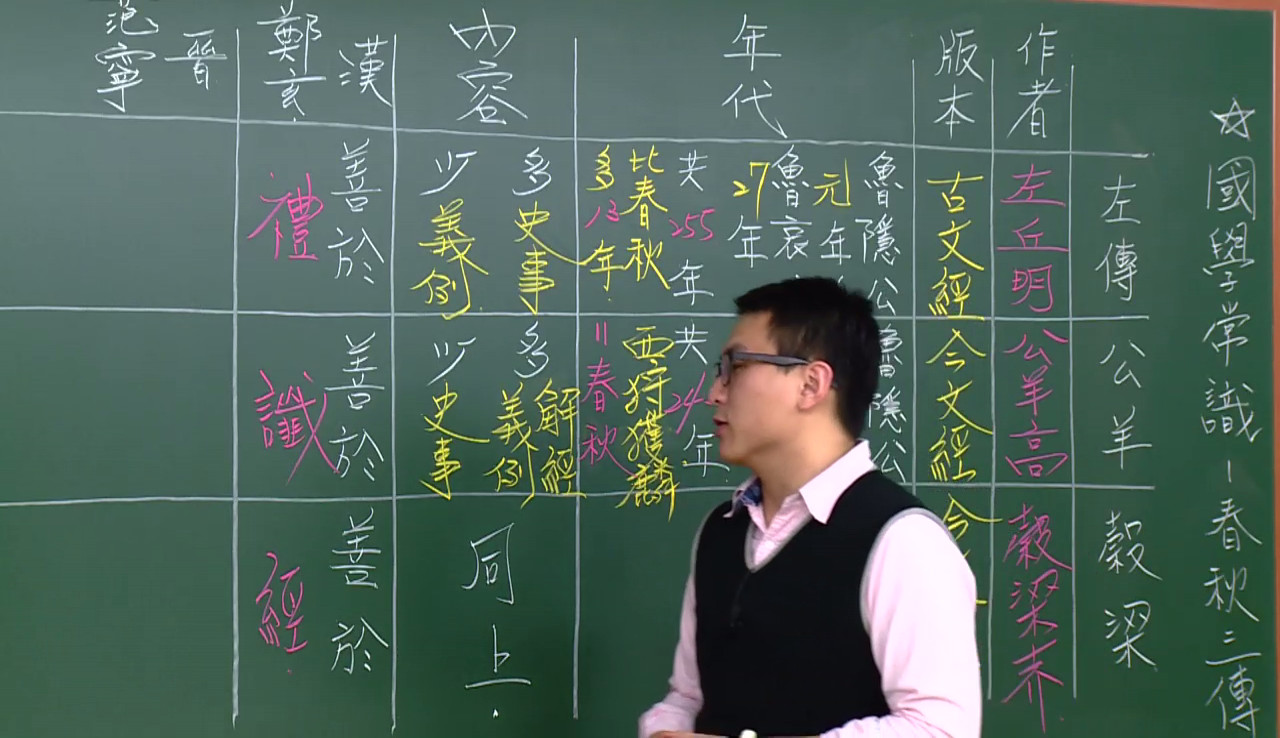 ☆國學常識-春秋三傳
左傳
公羊
穀梁
作者
左丘明
公羊高
穀梁赤
版本
古文經
今文經
今
年代
魯隱公
元年
魯哀
27年
共255年
比春秋
多13年
魯隱公
共24年
西狩獲麟
=春秋
內容
多史事
少義例
多解經
義例
少史事
同上
漢
鄭玄
善於
禮
善於
讖
善於
經
晉
范寧